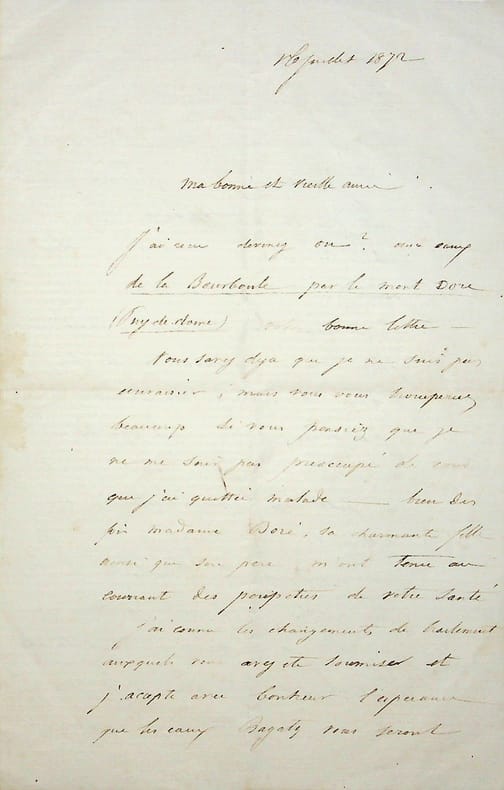 Juillet 1872
ma bonne et vieille amie
J'ai recu devinez ou? aux eaux
de la Bourboule par le mont Dore
(Puy de dome) votre bonne lettre —
Vous savez deja que je ne suis pas
ecrivassier; mais vous vous tromperiez
beaucoup si vous pensiez que je
ne me suis pas preoccupé de vous
que j'ai quittée malade — bien des
fois madame Doré, sa charmante fille
ainsi que son pere m'ont tenu au
courant des peripeties de votre santé
J'ai connu les changements de traitement
auxquels vous avez ete soumise et
j'acepte avec bonheur l'esperance
que les eaux vous seront